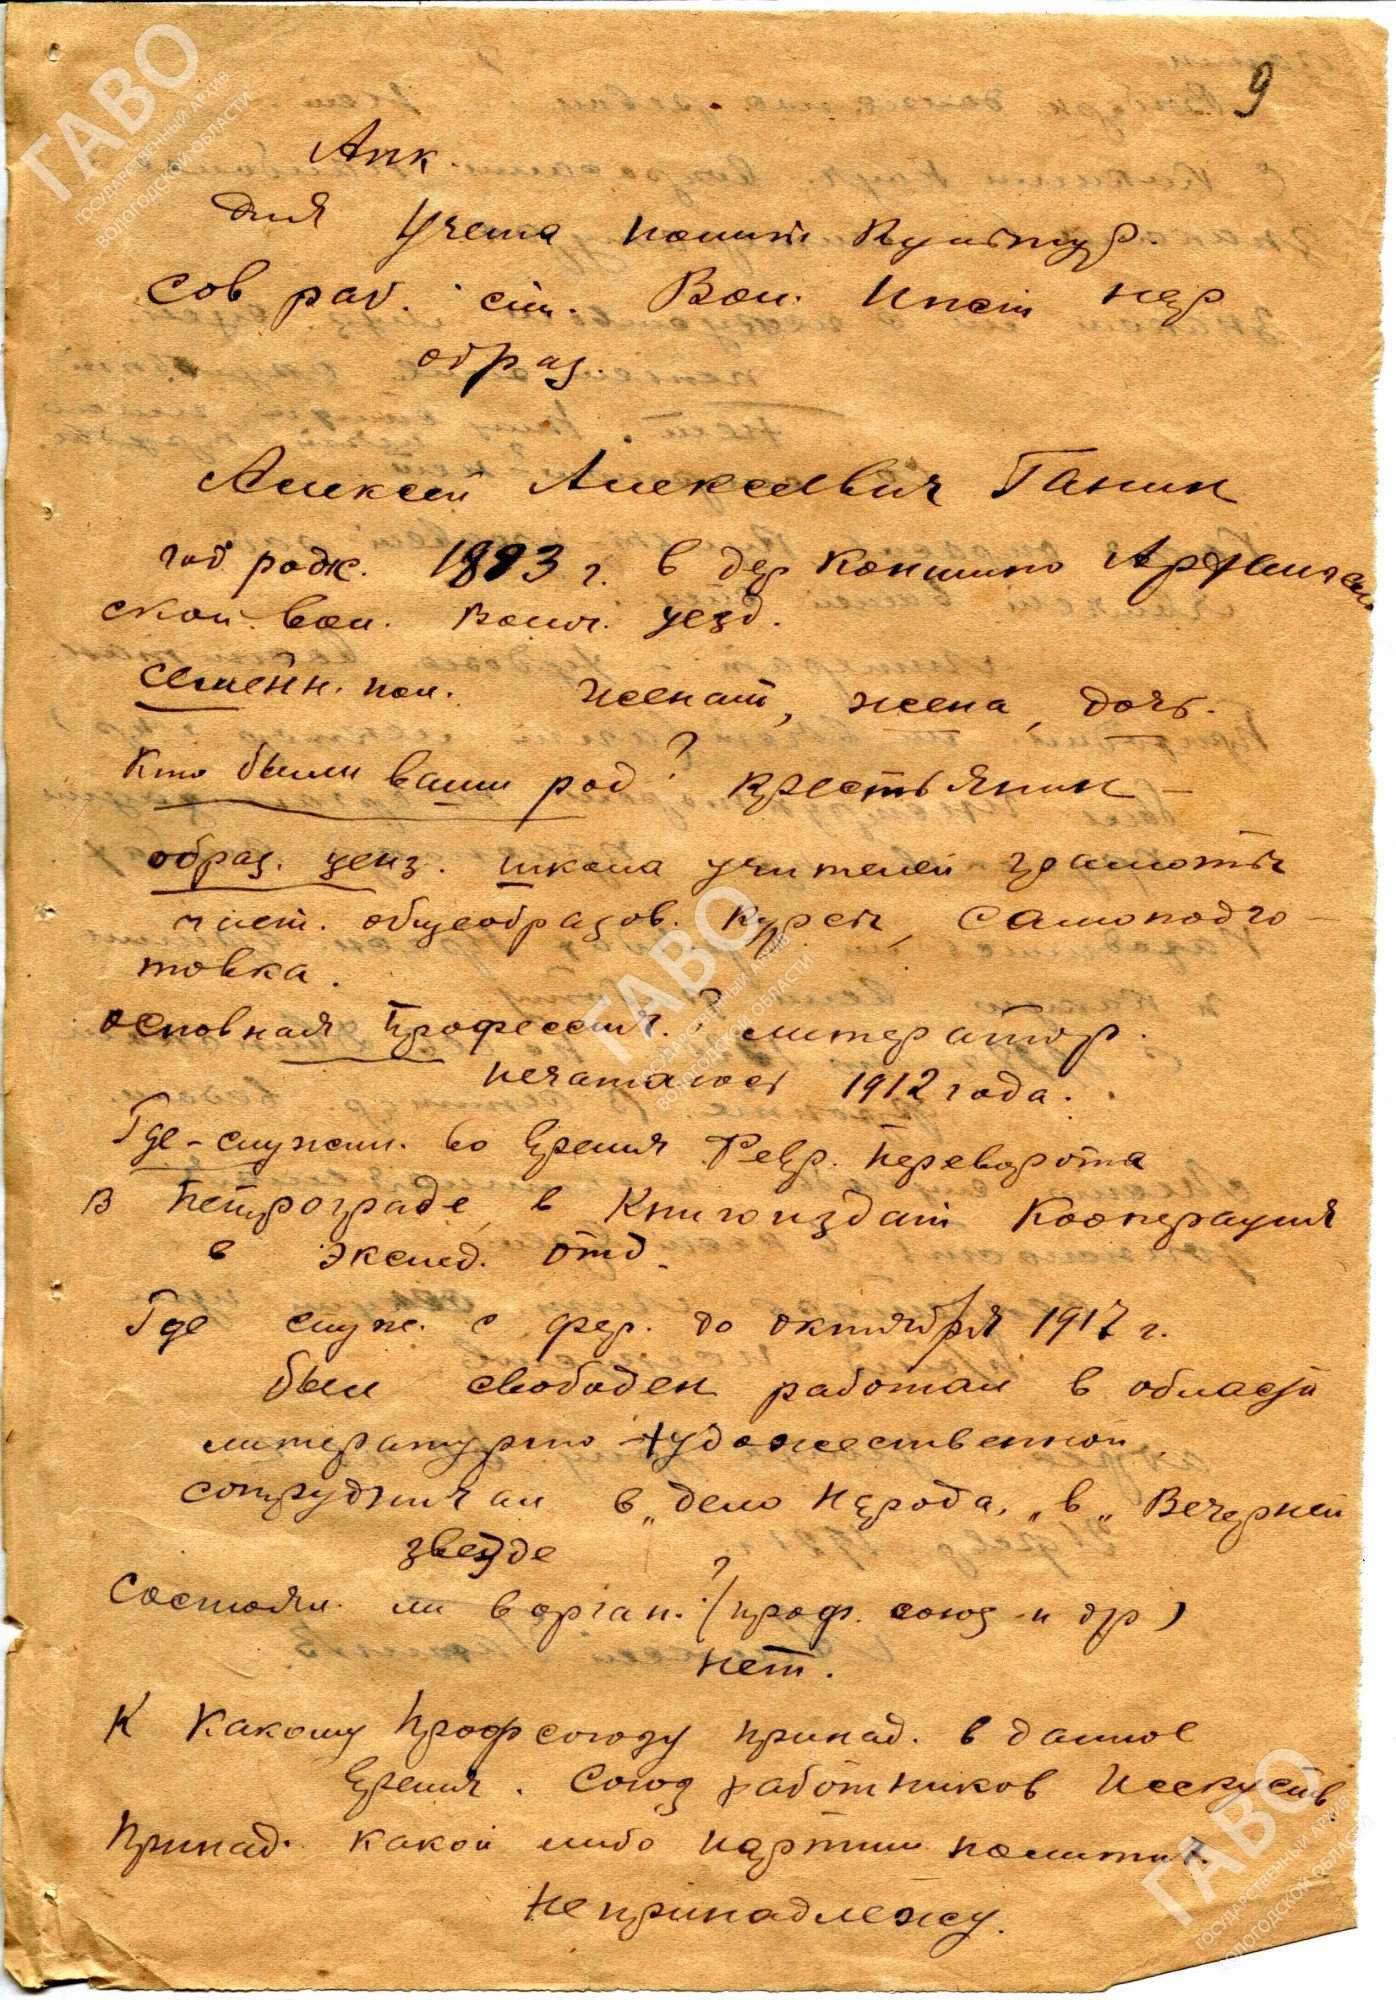 9
Анк.
для Учета полит культур.
сов раб. сш. Вол. Инст нар
образ.
Алексей Алексеевич Ганин
год родж. 1893 г. в дер Коншино Архангель
ской. вол. Волог. уезд.
семейн. пол. женат, жена, дочь.
Кто были ваши род? крестьянин —
образ. ценз. школа учителей грамоты
част. общеобразов. курсы, самоподго-
товка.
основная профессия.? литератор.
печатаюсь 1912 года.
Где-служил. во время Февр. переворота
в Петрограде, в Книгоиздат Кооперация
в экспед. отд.
Где служ. с фев. до октября 1917 г.
был свободен работал в области
литературно-художественной
сотрудничал в „дело народа,„ в „Вечерней
звезде
Состоял. ли в орган.? (проф. союз-и др)
нет.
К какому профсоюзу принад. в данное
время. Союз работников Искусств
Принад. какой либо партии политич.
не принадлежу.
ГАВО
ГОСУДАРСТВЕННЫЙ АРХИВ
ВОЛОГОДСКОЙ ОБЛАСТИ
ГАВО
ГОСУДАРСТВЕННЫЙ АРХИВ
ВОЛОГОДСКОЙ ОБЛАСТИ
ГАВО
ГОСУДАРСТВЕННЫЙ АРХИВ
ВОЛОГОДСКОЙ ОБЛАСТИ